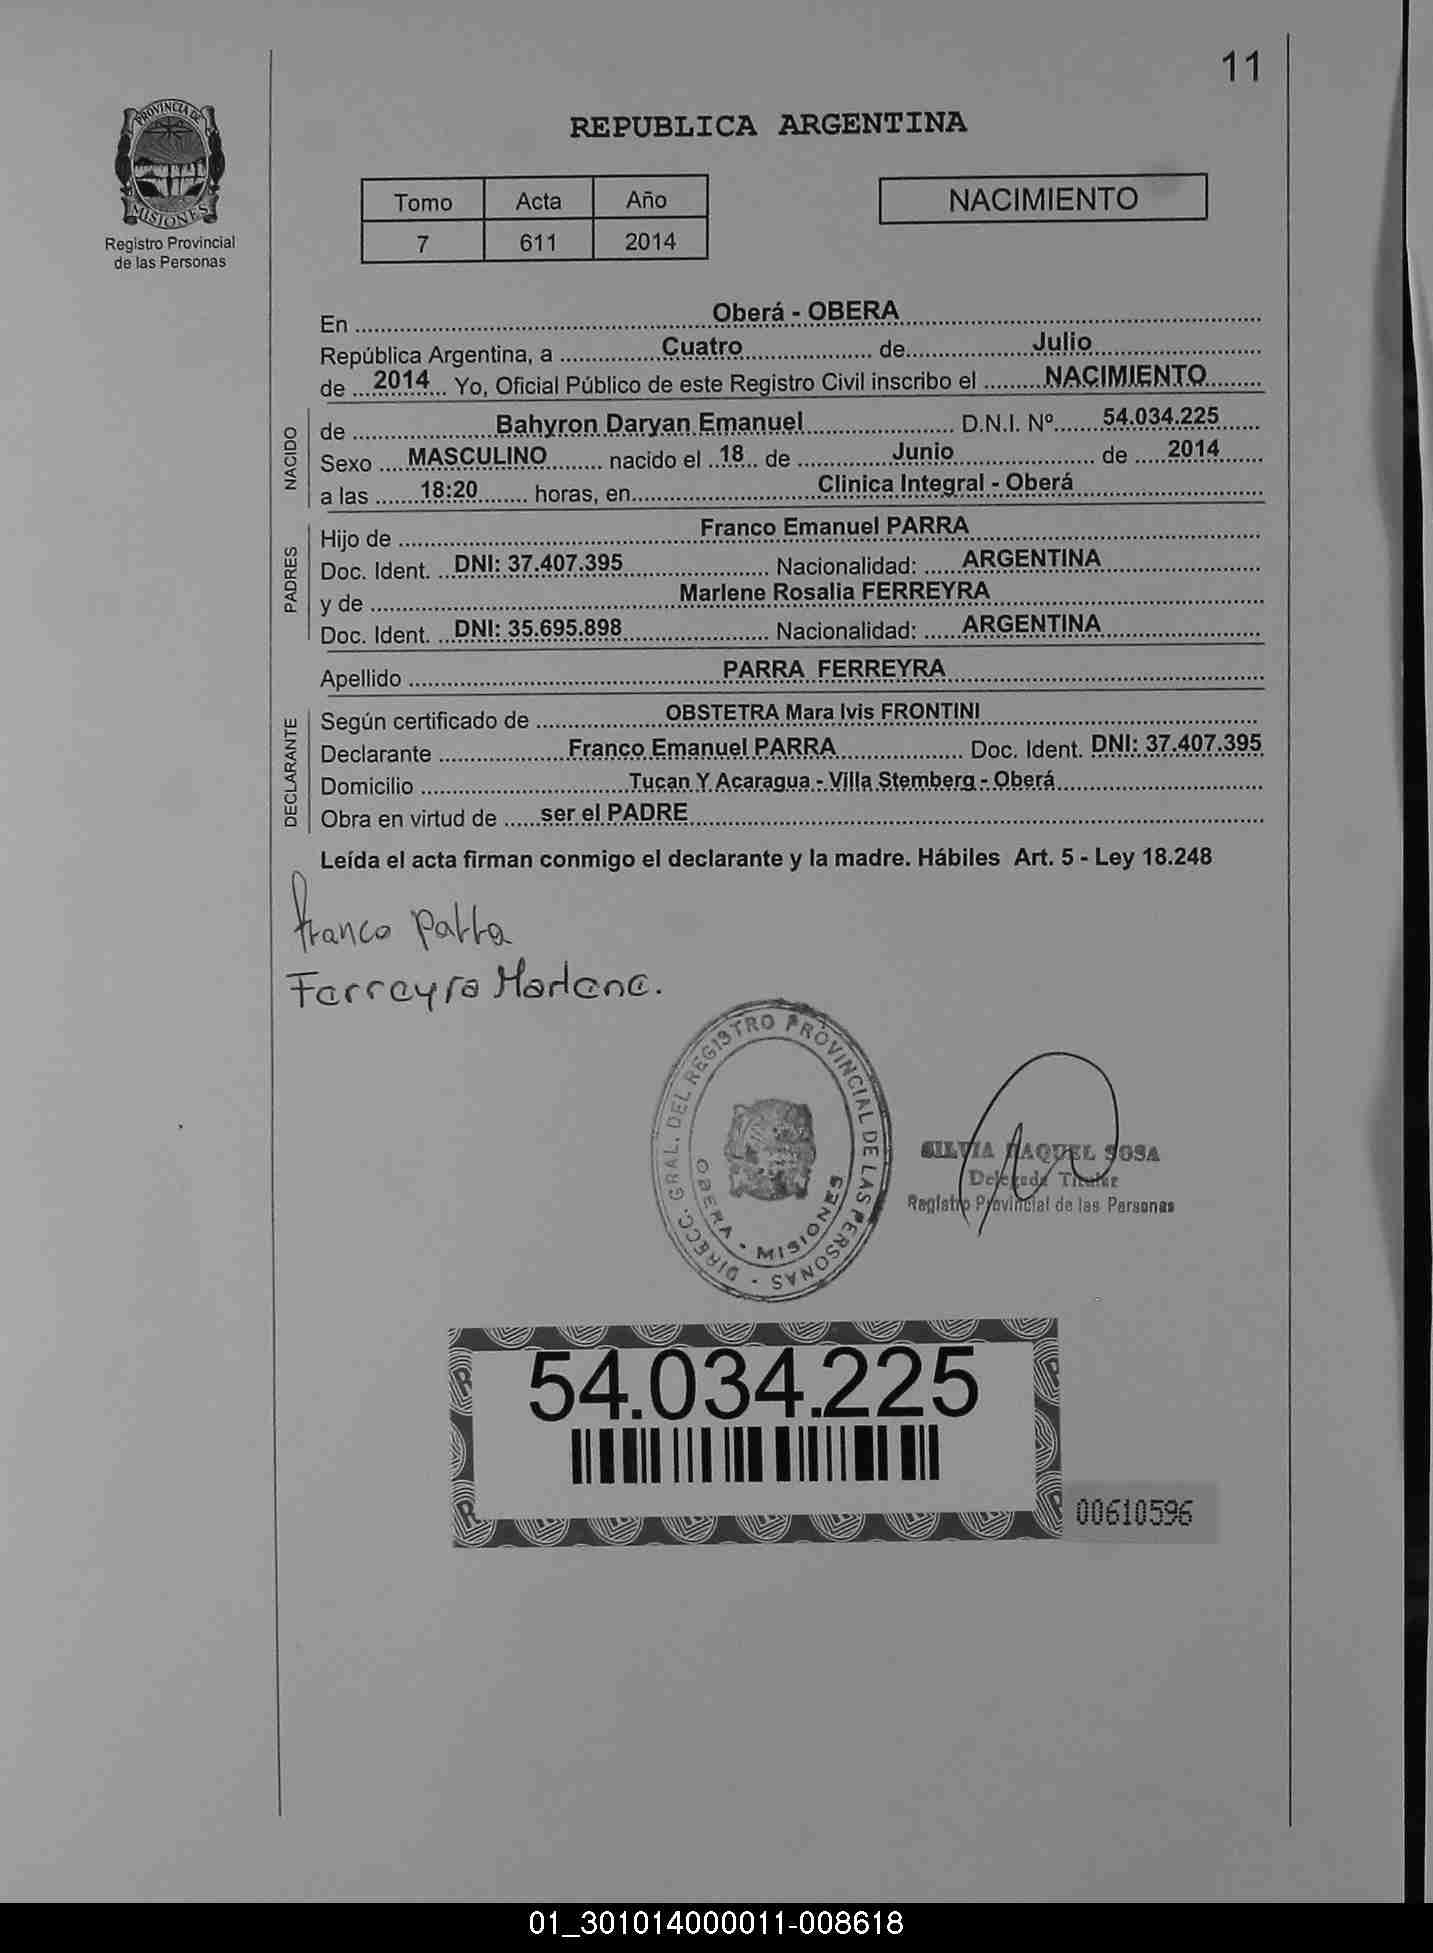 11
PROVINCIA DE
MISIONES
Registro Provincial
de las Personas
REPUBLICA ARGENTINA
Tomo Acta Año
7 611 2014
NACIMIENTO
En Oberá - OBERA
República Argentina, a Cuatro de Julio
de 2014 Yo, Oficial Público de este Registro Civil inscribo el NACIMIENTO
NACIDO
de Bahyron Daryan Emanuel D.N.I. Nº 54.034.225
Sexo MASCULINO nacido el 18 de Junio de 2014
a las 18:20 horas, en Clinica Integral - Oberá
PADRES
Hijo de Franco Emanuel PARRA
Doc. Ident. DNI: 37.407.395 Nacionalidad: ARGENTINA
y de Marlene Rosalia FERREYRA
Doc. Ident. DNI: 35.695.898 Nacionalidad: ARGENTINA
Apellido PARRA FERREYRA
DECLARANTE
Según certificado de OBSTETRA Mara Ivis FRONTINI
Declarante Franco Emanuel PARRA Doc. Ident. DNI: 37.407.395
Domicilio Tucan Y Acaragua - Villa Stemberg - Oberá
Obra en virtud de ser el PADRE
Leída el acta firman conmigo el declarante y la madre. Hábiles Art. 5 - Ley 18.248
Franco Parra
Ferreyra Marlene.
DIRECC. GRAL. DEL REGISTRO PROVINCIAL DE LAS PERSONAS -
OBERA - MISIONES
SILVIA RAQUEL SOSA
Delegada Titular
Registro Provincial de las Personas
54.034.225
00610596
01_301014000011-008618